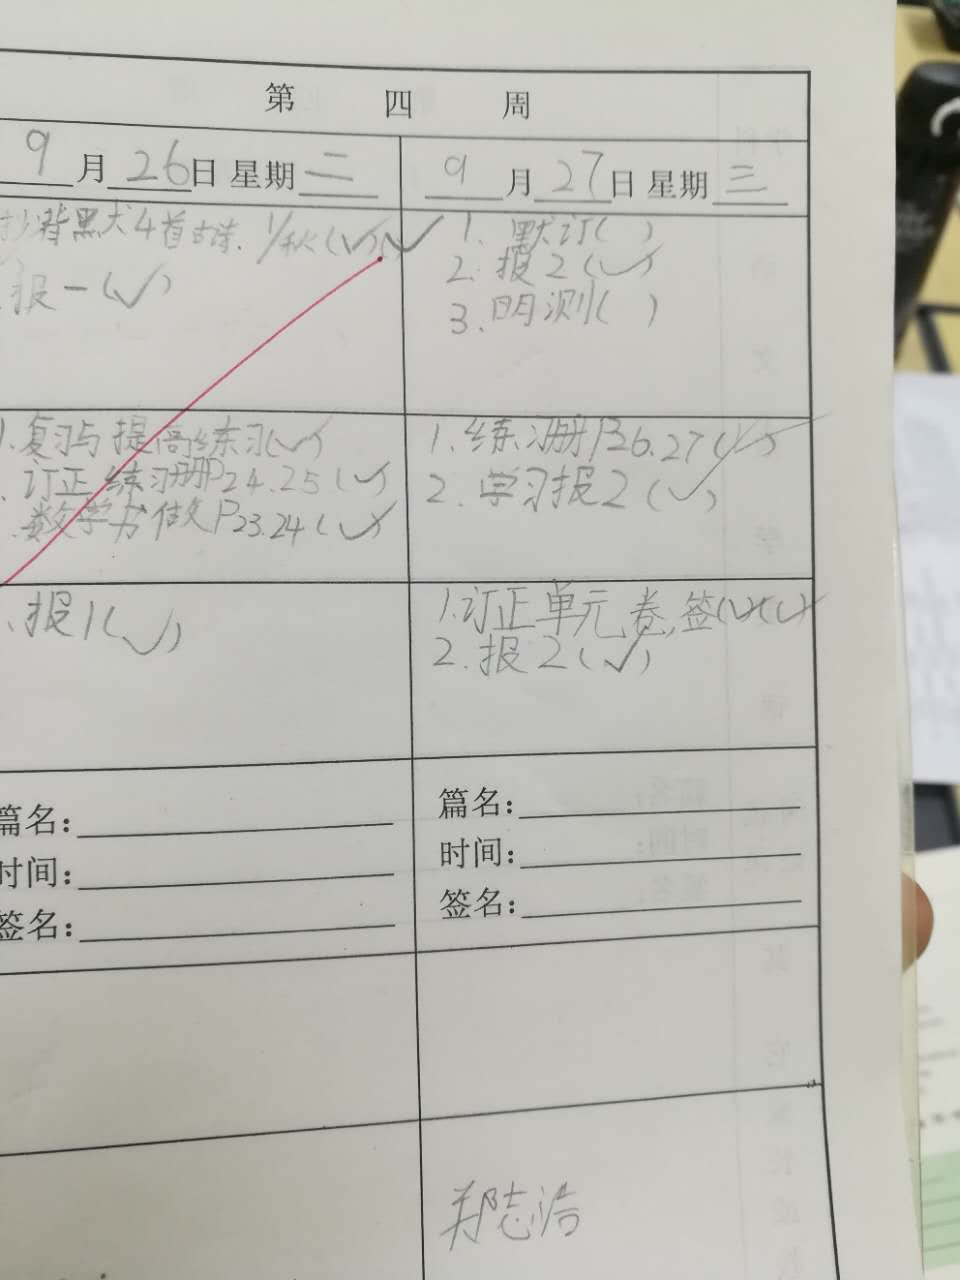 第 四 周
9月26日 星期二
抄背默大4首古诗. 1/秋(✓)(✓
报一(✓)
1.复习与提高练习(✓)
订正练习册P24.25(✓)
.数学书做P23.24(✓)
.报1(✓)
篇名:
时间:
签名:
9月27日 星期三
1. 默订( )
2. 报2(✓)
3.明测( )
1.练习册P26.27(✓)
2.学习报2(✓)
1.订正单元卷,签(✓)(✓)
2.报2(✓)
篇名:
时间:
签名:
郑志浩